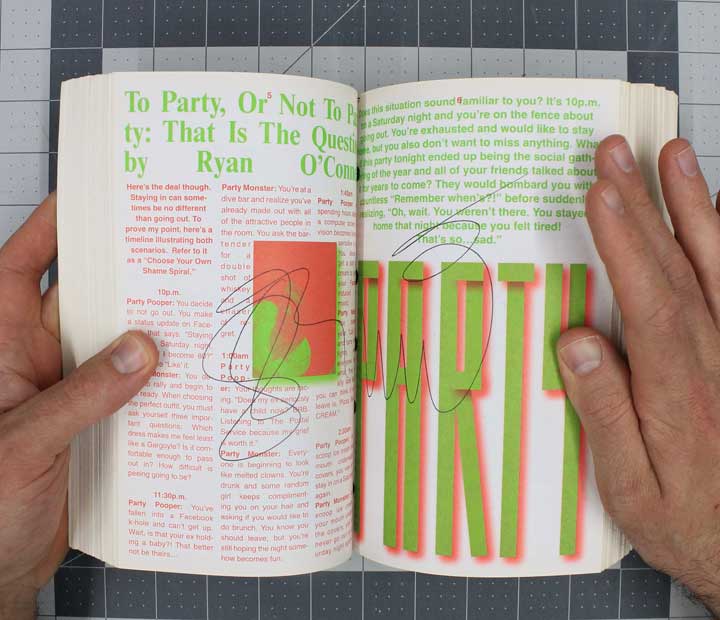 To Party, Or Not To
ty: That Is The
by Ryan
5
Here's the deal though.
Staying in can some-
times be no different
than going out. To
prove my point, here's a
timeline illustrating both
scenarios. Refer to it
as a "Choose Your Own
Shame Spiral."
10p.m.
Party Pooper: You decide
to not go out. You make
a status update on Face-
that says "Staying
Saturday night
become 80?"
"Like" it.
Monster: You
rally and begin to
ready. When choosing
the perfect outfit, you must
ask yourself three impor-
tant questions: Which
dress makes me feel least
like a Gargoyle? Is it com-
fortable enough to pass
out in? How difficult is
peeing going to be?
11:30p.m.
Party Pooper: You've
fallen into a Facebook
k-hole and can't get up.
Wait, is that your ex hold-
ing a baby?! That better
not be theirs...
Party Monster: You're at a
dive bar and realize you've
already made out with all
of the attractive people in
the room. You ask the bar-
tender
for a
double
shot of
whiskey
and a
chaser
of re-
gret.
1:00am
Party
Poop-
er: Your thoughts are
"Does my ex seriously
have a child now? BRB.
Listening to The Postal
Service because my grief
is worth it."
Party Monster: Every-
one is beginning to look
like melted clowns. You're
drunk and some random
girl keeps compliment-
ing you on your hair and
asking if you would like to
do brunch. You know you
should leave, but you're
still hoping the night some-
how becomes fun.
1:45am
Party
spending
a computer
vision become
2:30am
Party Pooper:
again.
Party Monster:
6
this situation sound familiar to you? It's 10p.m.
a Saturday night and you're on the fence about
going out. You're exhausted and would like to stay
but you also don't want to miss anything. What
this party tonight ended up being the social gath-
of the year and all of your friends talked about
for years to come? They would bombard you with
countless "Remember when's?!" before suddenly
realizing, "Oh, wait. You weren't there. You stayed
home that night because you felt tired!
That's so...sad."
PARTY